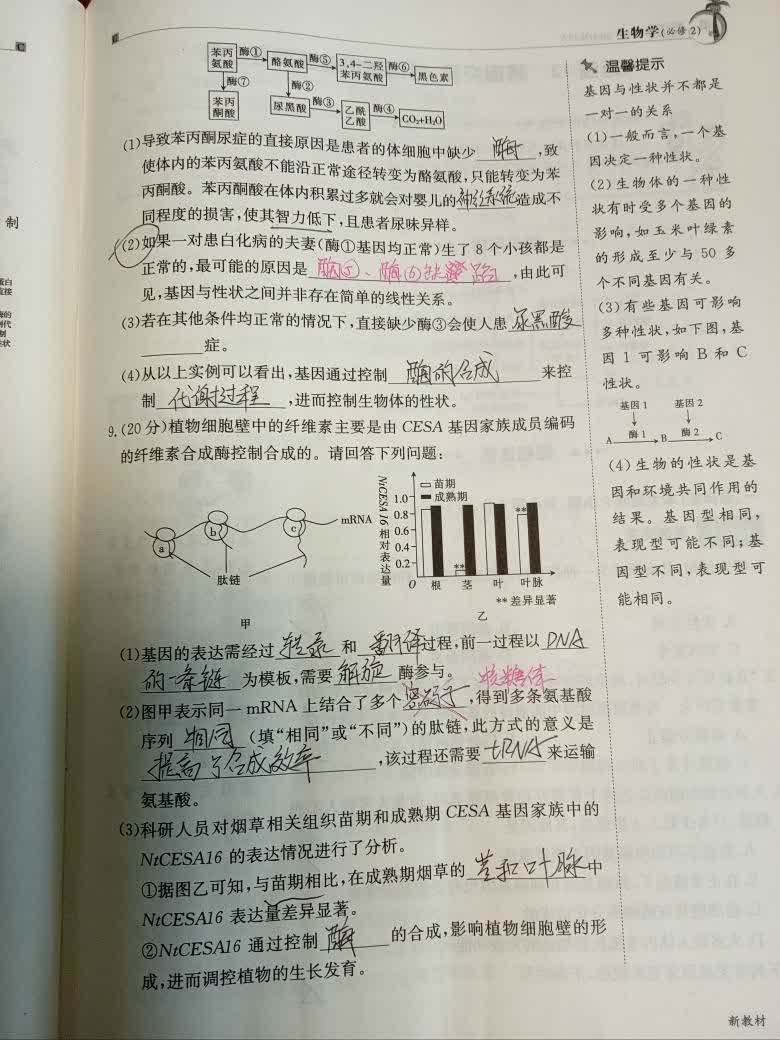 生物学(必修2)
苯丙氨酸 酶① 酪氨酸 酶⑤ 3,4-二羟苯丙氨酸 酶⑥ 黑色素
酶⑦ 酶②
苯丙酮酸 尿黑酸 酶③ 乙酰乙酸 酶④ CO₂+H₂O
(1)导致苯丙酮尿症的直接原因是患者的体细胞中缺少 酶① ,致
使体内的苯丙氨酸不能沿正常途径转变为酪氨酸,只能转变为苯
丙酮酸。苯丙酮酸在体内积累过多就会对婴儿的神经系统造成不
同程度的损害,使其智力低下,且患者尿味异样。
(2)如果一对患白化病的夫妻(酶①基因均正常)生了8个小孩都是
正常的,最可能的原因是 酶⑤、酶⑥ ,由此可
见,基因与性状之间并非存在简单的线性关系。
(3)若在其他条件均正常的情况下,直接缺少酶③会使人患 尿黑酸
症。
(4)从以上实例可以看出,基因通过控制 酶的合成 来控
制 代谢过程 ,进而控制生物体的性状。
9.(20分)植物细胞壁中的纤维素主要是由CESA基因家族成员编码
的纤维素合成酶控制合成的。请回答下列问题:
a b c mRNA
肽链
甲
NtCESA16相对表达量
苗期
成熟期
1.0
0.8
0.6
0.4
0.2
O 根 茎 叶 叶脉
** **
**差异显著
乙
(1)基因的表达需经过 转录 和 翻译过程,前一过程以 DNA
的一条链 为模板,需要 解旋 酶参与。
核糖体
(2)图甲表示同一mRNA上结合了多个 密码子 ,得到多条氨基酸
序列 相同 (填“相同”或“不同”)的肽链,此方式的意义是
提高了合成效率 ,该过程还需要 tRNA 来运输
氨基酸。
(3)科研人员对烟草相关组织苗期和成熟期CESA基因家族中的
NtCESA16的表达情况进行了分析。
①据图乙可知,与苗期相比,在成熟期烟草的 茎和叶脉中
NtCESA16表达量差异显著。
②NtCESA16通过控制 酶 的合成,影响植物细胞壁的形
成,进而调控植物的生长发育。
温馨提示
基因与性状并不都是
一对一的关系
(1)一般而言,一个基
因决定一种性状。
(2)生物体的一种性
状有时受多个基因的
影响,如玉米叶绿素
的形成至少与50多
个不同基因有关。
(3)有些基因可影响
多种性状,如下图,基
因1可影响B和C
性状。
基因1 基因2
A 酶1 B 酶2 C
(4)生物的性状是基
因和环境共同作用的
结果。基因型相同,
表现型可能不同;基
因型不同,表现型可
能相同。
新教材